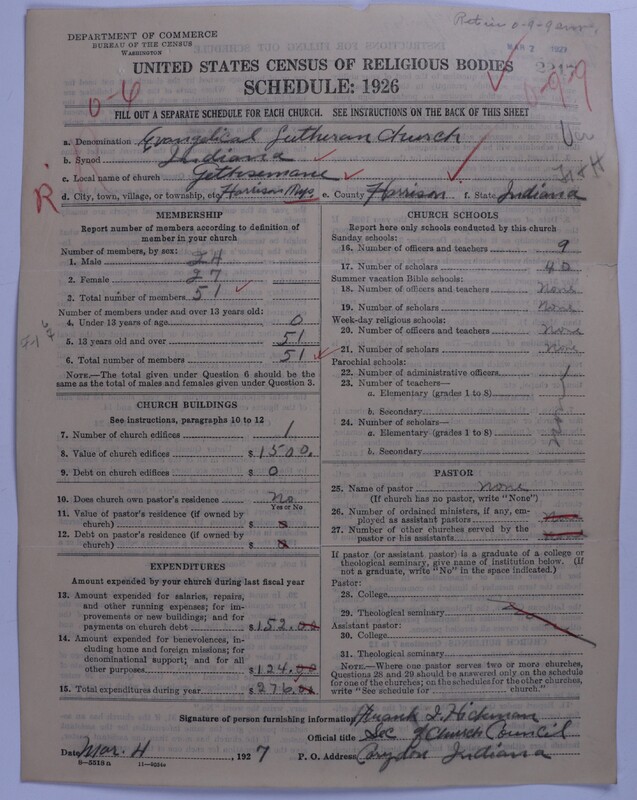 DEPARTMENT OF COMMERCE
BUREAU OF THE CENSUS
WASHINGTON
MAR 7 1927
UNITED STATES CENSUS OF RELIGIOUS BODIES
SCHEDULE: 1926
0-6
0-9-9
FILL OUT A SEPARATE SCHEDULE FOR EACH CHURCH. SEE INSTRUCTIONS ON THE BACK OF THIS SHEET
a. Denomination Evangelical Lutheran Church
b. Synod Indiana
c. Local name of church Gethsemane
d. City, town, village, or township, etc. Harrison e. County Harrison f. State Indiana
R
MEMBERSHIP
Report number of members according to definition of member in your church
Number of members, by sex:
1. Male 24
2. Female 27
3. Total number of members 51
Number of members under and over 13 years old:
4. Under 13 years of age 0
5. 13 years old and over 51
6. Total number of members 51
NOTE.—The total given under Question 6 should be the same as the total of males and females given under Question 3.
CHURCH BUILDINGS
See instructions, paragraphs 10 to 12
7. Number of church edifices 1
8. Value of church edifices $ 1500.
9. Debt on church edifices $ 0
10. Does church own pastor's residence No
Yes or No
11. Value of pastor's residence (if owned by church) $
12. Debt on pastor's residence (if owned by church) $
EXPENDITURES
Amount expended by your church during last fiscal year
13. Amount expended for salaries, repairs, and other running expenses; for improvements or new buildings; and for payments on church debt $ 152.00
14. Amount expended for benevolences, including home and foreign missions; for denominational support; and for all other purposes $ 124.00
15. Total expenditures during year $ 276.00
CHURCH SCHOOLS
Report here only schools conducted by this church
Sunday schools:
16. Number of officers and teachers 9
17. Number of scholars 40
Summer vacation Bible schools:
18. Number of officers and teachers None
19. Number of scholars None
Week-day religious schools:
20. Number of officers and teachers None
21. Number of scholars None
Parochial schools:
22. Number of administrative officers
23. Number of teachers—
a. Elementary (grades 1 to 8)
b. Secondary
24. Number of scholars—
a. Elementary (grades 1 to 8)
b. Secondary
None
PASTOR
25. Name of pastor None
(If church has no pastor, write "None")
26. Number of ordained ministers, if any, employed as assistant pastors
27. Number of other churches served by the pastor or his assistants
If pastor (or assistant pastor) is a graduate of a college or theological seminary, give name of institution below. (If not a graduate, write "No" in the space indicated.)
Pastor:
28. College
29. Theological seminary
Assistant pastor:
30. College
31. Theological seminary
NOTE.—Where one pastor serves two or more churches, Questions 28 and 29 should be answered only on the schedule for one of the churches; on the schedules for the other churches, write "See schedule for church."
Signature of person furnishing information Frank I. Hickman
Official title Sec of Church Council
Date Mar. 4, 1927 P. O. Address Corydon Indiana
8-5518 n